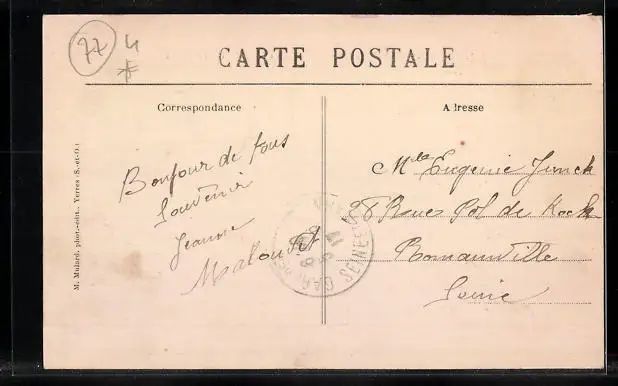 77
4
CARTE POSTALE
Correspondance
A lresse
Bonjour de tous
Souvenir
Jeanne
M. Mulard, phot.-édit., Yerres (S.-et-O.)
Mlle Eugenie Junck
28 Rues Pol de Kock
Romainville
Seine
SEINE